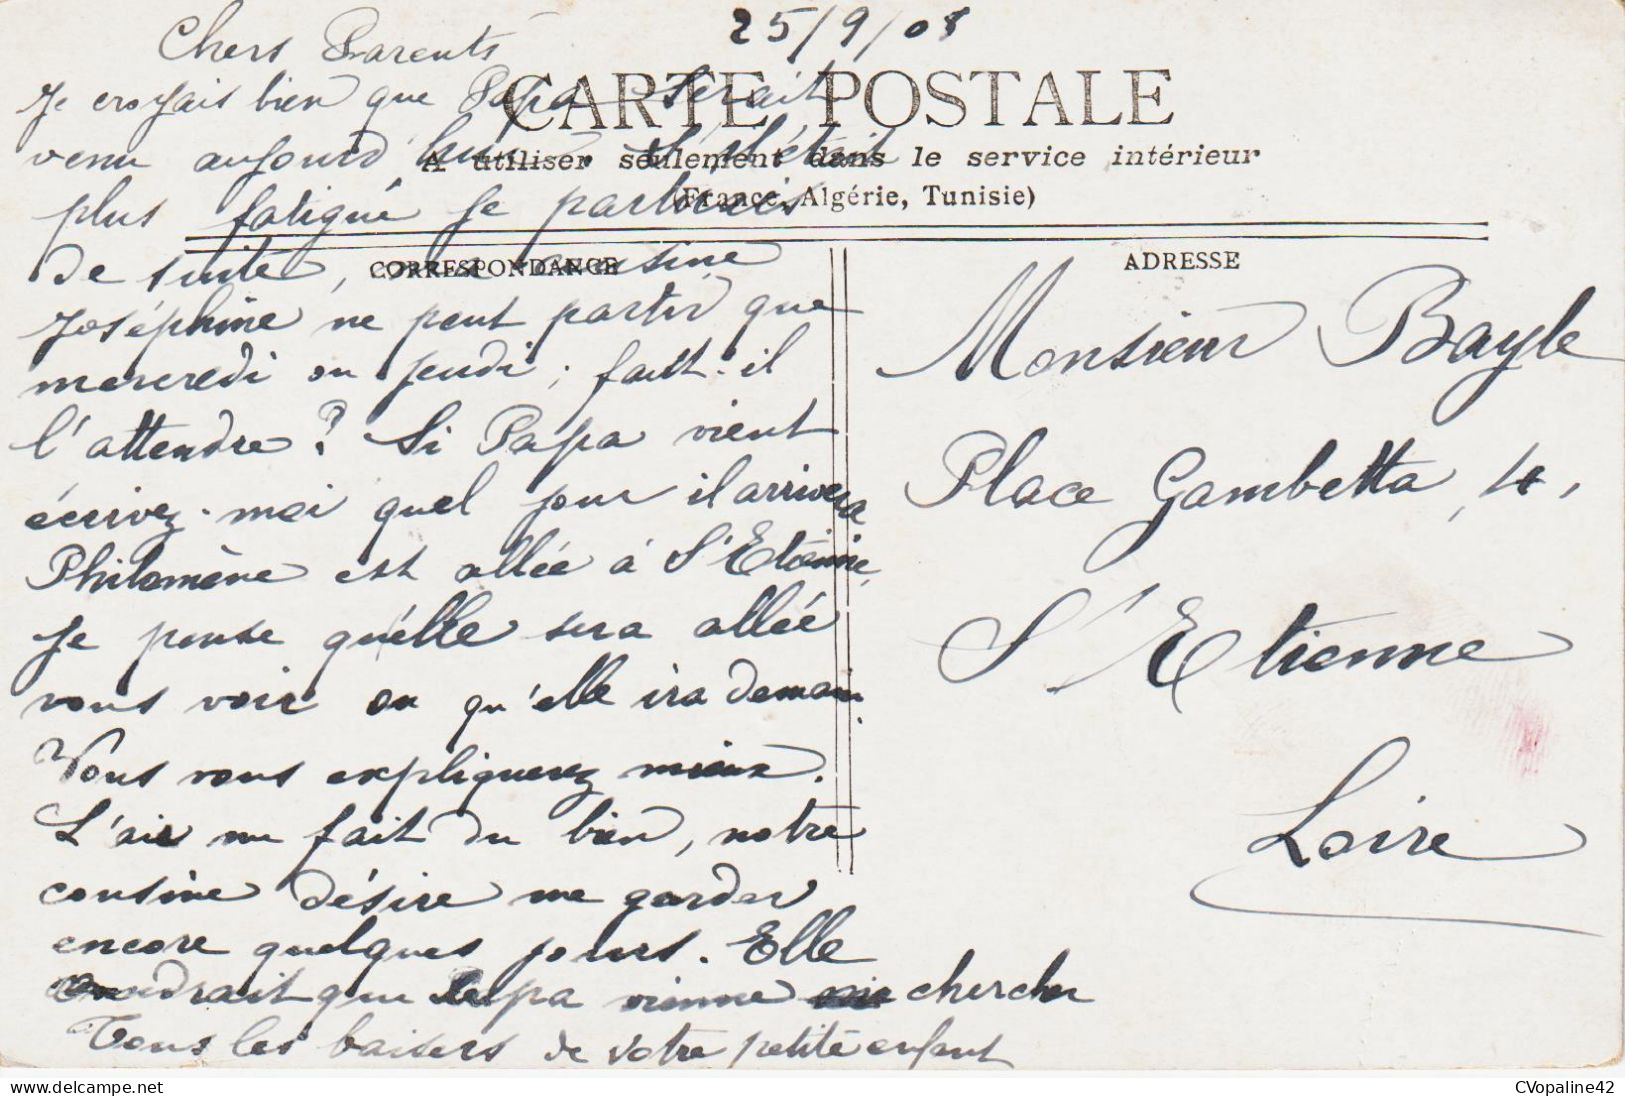 25/9/08
Chers Parents
CARTE POSTALE
A utiliser seulement dans le service intérieur
(France, Algérie, Tunisie)
CORRESPONDANCE
Je croyais bien que Papa serait
venu aujourd'hui. S'il était
plus fatigué je partirais
de suite, ma cousine
Joséphine ne peut partir que
mercredi ou jeudi ; faut-il
l'attendre ? Si Papa vient
écrivez-moi quel jour il arrivera
Philomène est allée à St Etienne,
je pense qu'elle sera allée
vous voir ou qu'elle ira demain.
Vous vous expliquerez mieux.
L'air me fait du bien, notre
cousine désire me garder
encore quelques jours. Elle
voudrait que papa vienne me chercher
Tous les baisers de votre petite enfant
ADRESSE
Monsieur Bayle
Place Gambetta, 4,
St Etienne
Loire
CVopaline42